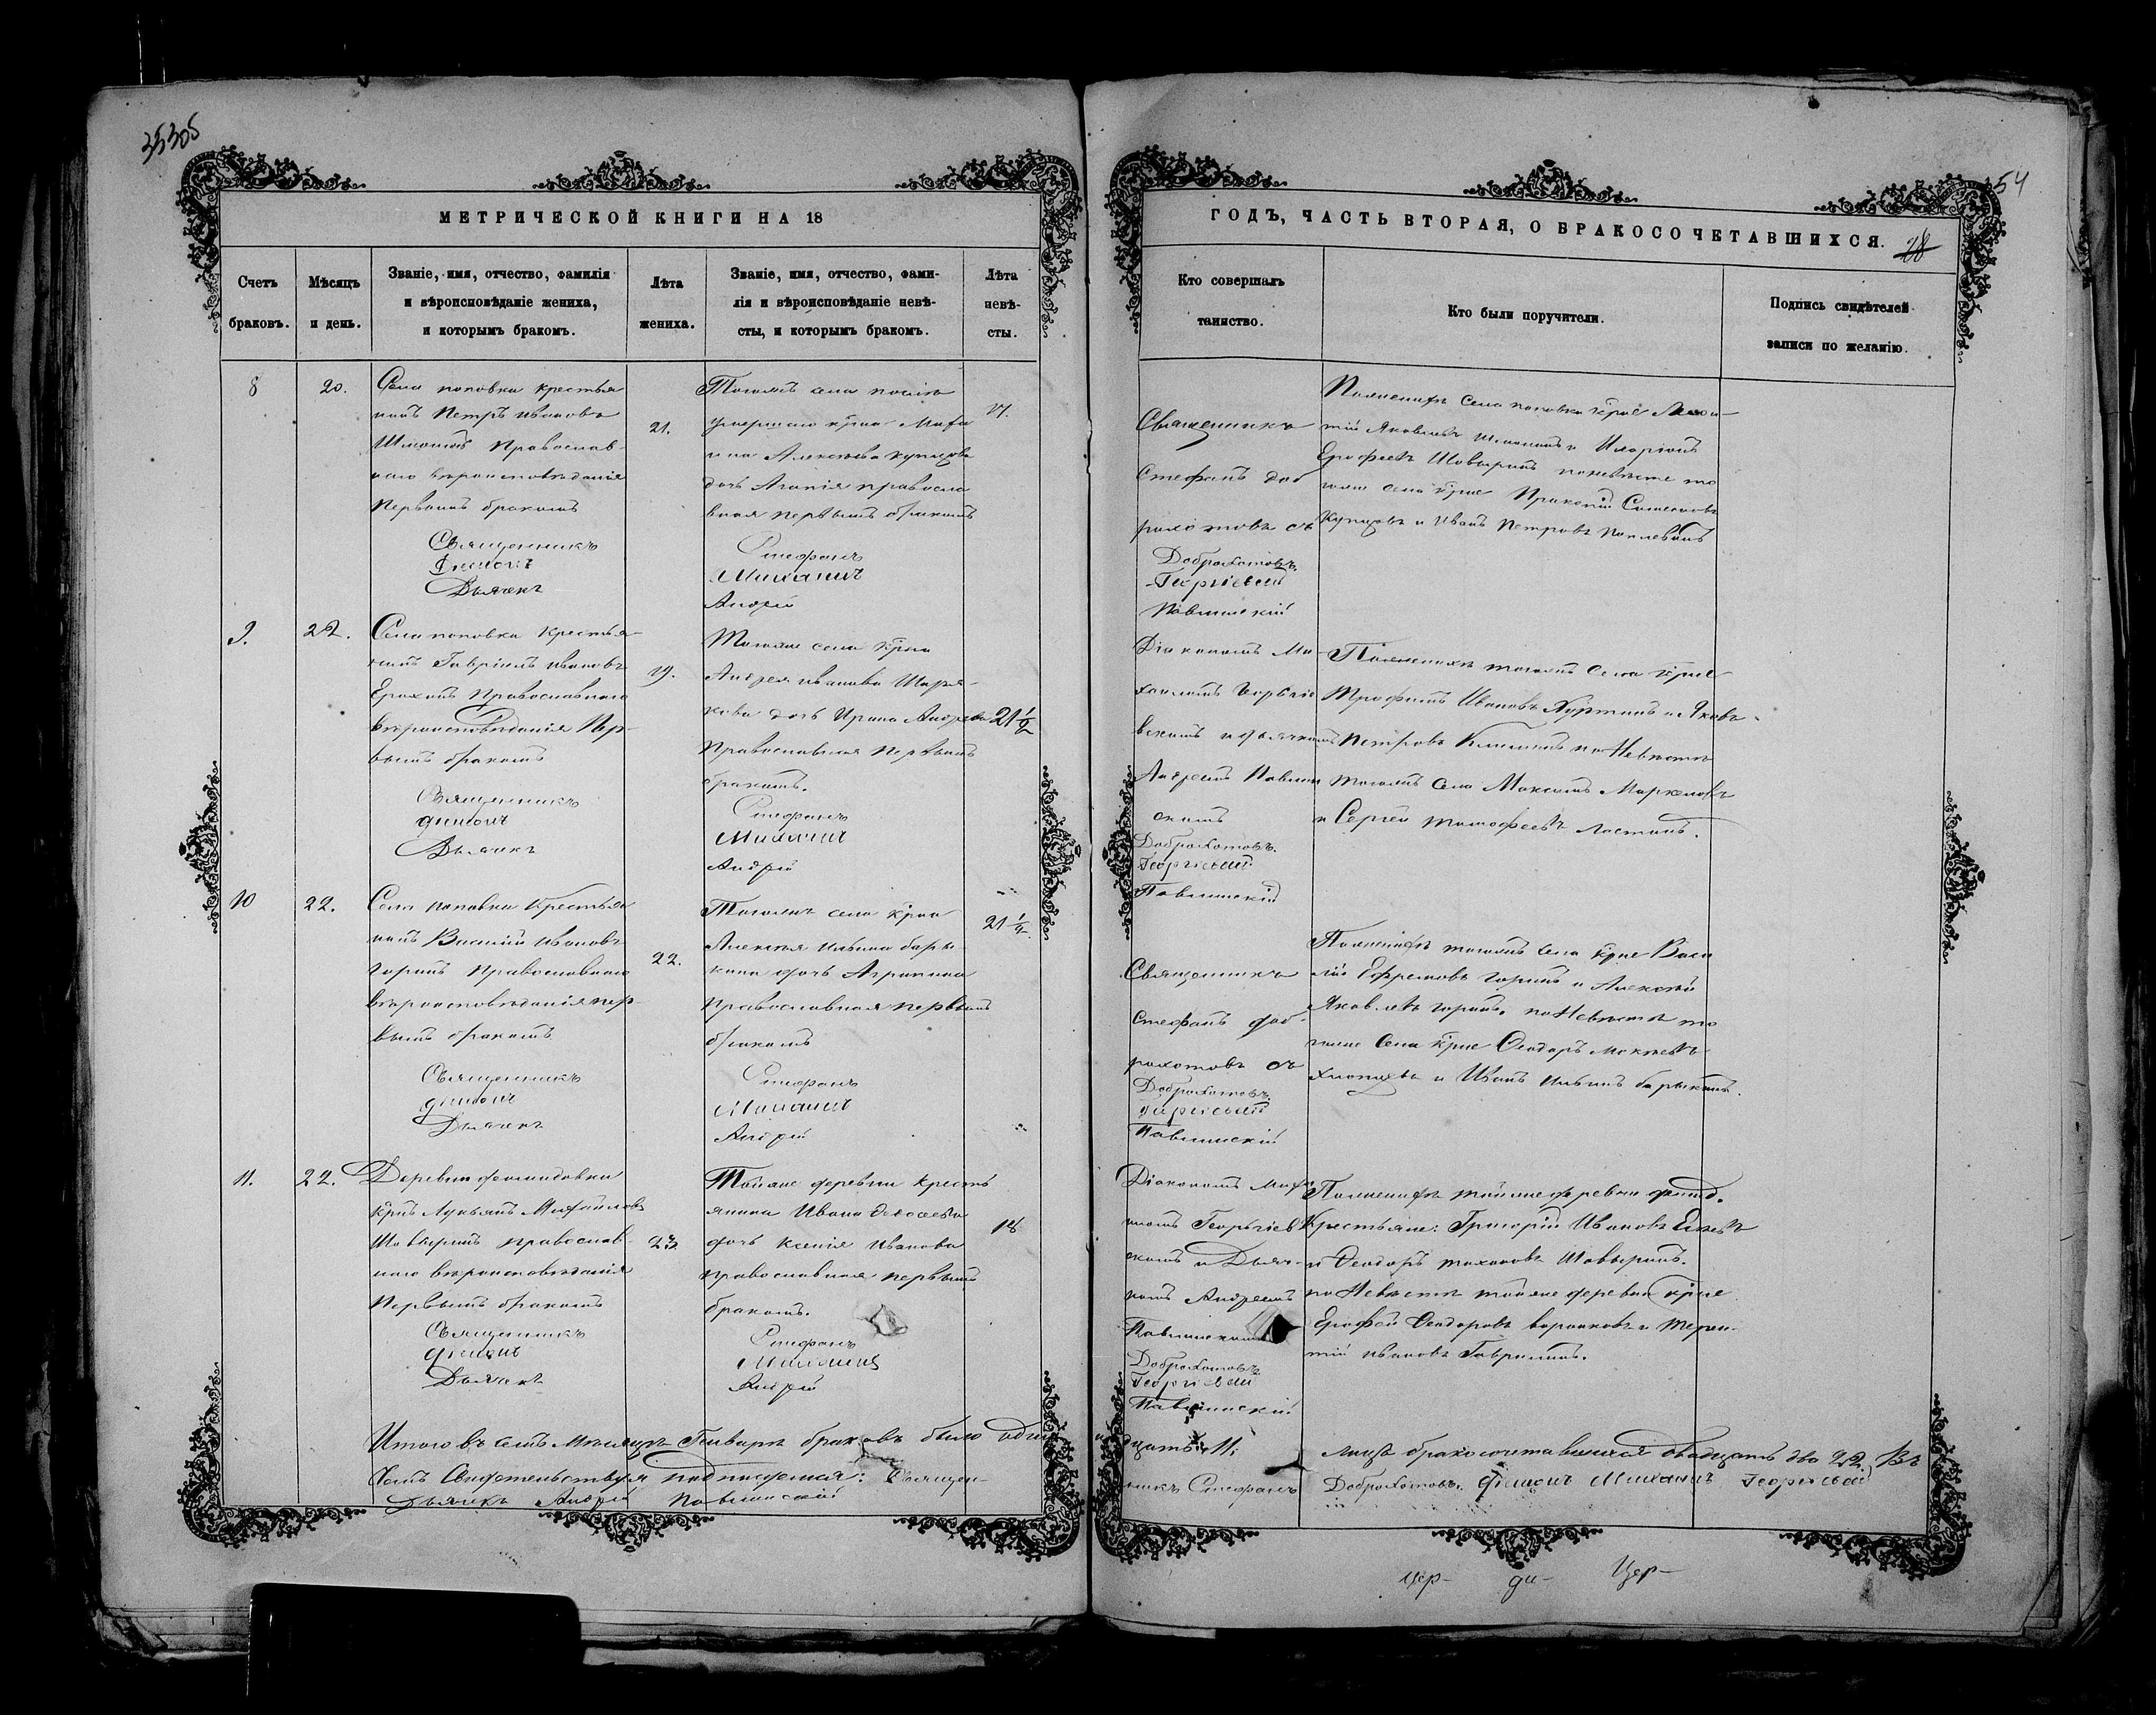 35305
МЕТРИЧЕСКОЙ КНИГИ НА 18
Счетъ
браковъ.
Мѣсяцъ
и день.
Званіе, имя, отчество, фамилія
и вѣроисповѣданіе жениха,
и которымъ бракомъ.
Лѣта
жениха.
Званіе, имя, отчество, фами-
лія и вѣроисповѣданіе невѣ-
сты, и которымъ бракомъ.
Лѣта
невѣ-
сты.
8
20.
Села поповки крестья
нинъ Петръ Ивановъ
Православ-
наго вѣроисповѣданія
Первымъ бракомъ
Священникъ
Діаконъ
Дьячекъ
21.
Тогожъ села послѣ
умершаго
Алексѣева купцова
дочь Агапія правосла
вная первымъ бракомъ
Стефанъ
Михаилъ
Андрей
9.
22.
Села поповки крестья-
нинъ Гавріилъ Ивановъ
Ерохинъ Православнаго
вѣроисповѣданія Пер-
вымъ бракомъ
Священникъ
діаконъ
Дьячекъ
19.
Тогоже села крна
Андрея Иванова
дочь Ирина Андреева
Православная Первымъ
бракомъ.
Стефанъ
Михаилъ
Андрей
21 1/2
10
22.
Села поповки Крестья
нинъ Василій Ивановъ
горинъ Православнаго
вѣроисповѣданія пер
вымъ бракомъ
Священникъ
діаконъ
Дьячекъ
22.
Тогожъ села крна
Алексѣя Ильина бары-
кина дочь Агрипина
Православная первымъ
бракомъ
Стефанъ
Михаилъ
Андрей
11.
22.
Деревни
крнъ Лукьянъ Михайловъ
Шавыринъ православ-
наго вѣроисповѣданія
Первымъ бракомъ
Священникъ
діаконъ
Дьячекъ
Тойже деревни кресть
янина Ивана
дочь Ксенія Иванова
православная первымъ
бракомъ.
Стефанъ
Михаилъ
Андрей
18
Итого въ семъ Мѣсяцѣ Генварѣ браковъ было один
семъ Свидѣтельствуя подписуемся: Священ-
Дьячекъ Андрей Павлинскій
54
ГОДЪ, ЧАСТЬ ВТОРАЯ, О БРАКОСОЧЕТАВШИХСЯ.
28
Кто совершалъ
таинство.
Кто были поручители.
Подпись свидѣтелей
записи по желанію.
Священникъ
Стефанъ доб
рохотовъ съ
Доброхотовъ.
Георгіевскій
Павлинскій
По женихѣ села поповки крне
Яковлевъ и Иларіонъ
Ерофеевъ Шавыринъ по невѣсте то
гоже села крне Пракопій Симеоновъ
Купцовъ и Иванъ Петровъ
Діакономъ Ми-
хаиломъ Георгіе
вскимъ и дьячкомъ
Андреемъ Павлин
скимъ
Доброхотовъ.
Георгіевскій
Павлинскій
По женихѣ тогожъ села крне
Трофимъ Ивановъ и Яковъ
Петровъ по Невѣстѣ
тогожъ села Максимъ Маркеловъ
и Сергей Тимофеевъ
Священникъ
Стефанъ доб-
рохотовъ съ
Доброхотовъ.
Георгіевскій
Павлинскій
По женихѣ тогожъ села крне Васи
лій Ефремовъ горинъ и Алексѣй
Яковлевъ горинъ. по Невѣстѣ то
гоже села крне Феодоръ
и Иванъ Ильинъ барыкинъ.
Діакономъ Миха
иломъ Георгіев
скимъ и Дьяч-
комъ Андреемъ
Павлинскимъ
Доброхотовъ
Георгіевскій
Павлинскій
По женихѣ тойже деревни
Крестьяне: Григорій Ивановъ
и Феодоръ Шавыринъ.
по Невѣстѣ тойже деревни крне
Ерофей Феодоровъ и Терен-
тій Ивановъ Гаврилинъ.
дцать 11. лицъ бракосочетавшихся двадцать два 22. Въ
никъ Стефанъ Доброхотовъ. діаконъ Михаилъ Георгіевскій
цер- ди- Цер-